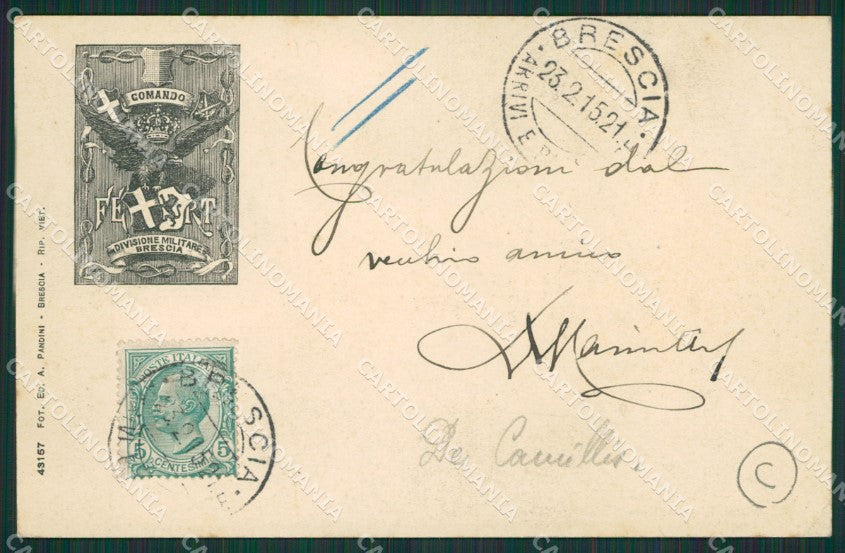 COMANDO
FERT
DIVISIONE MILITARE
BRESCIA
43157 FOT. ED. A. PANDINI - BRESCIA - RIP. VIET.
BRESCIA
ARRIVI
23.2.15.21
Congratulazioni dal
vecchio amico
POSTE ITALIANE
5 CENTESIMI 5
BRESCIA
De Camillis.
C
CARTOLINOMANIA